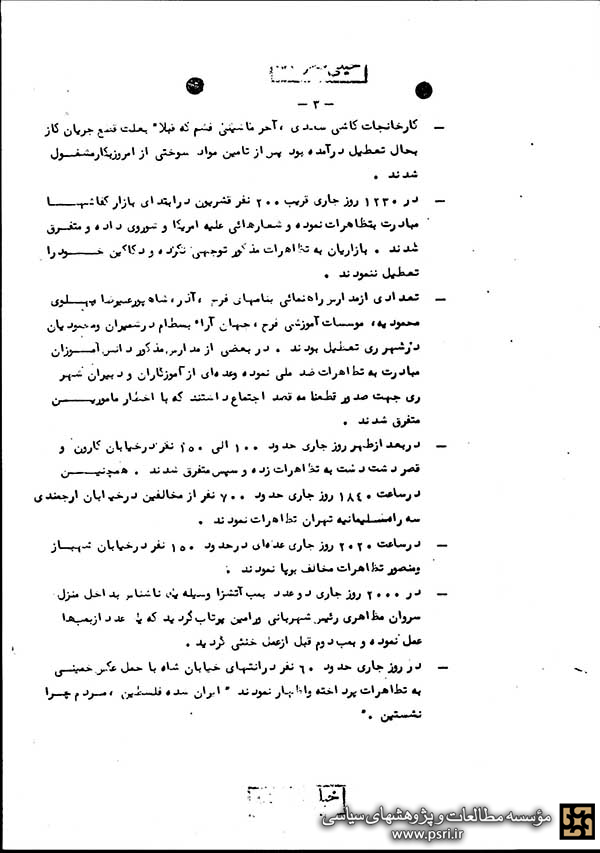 خیلی
— ۳ —
— کارخانجات کاشی سعدی ، آجر ماشینی قشم که قبلا" بعلت قطع جریان گاز
بحال تعطیل درآمده بود پس از تامین مواد سوختی از امروز بکار مشغول
شدند .
— در ۱۲۳۰ روز جاری قریب ۲۰۰ نفر قشریون در ابتدای بازار کفاشها
مبادرت بتظاهرات نموده و شعارهائی علیه امریکا و شوروی داده و متفرق
شدند . بازاریان به تظاهرات مذکور توجهی نکرده و دکاکین خود را
تعطیل ننمودند .
— تعدادی از مدارس راهنمائی بنامهای فرح ، آذر، شاهپور علیرضا پهلوی
محمودیه، موسسات آموزشی فرح ، جهان آرا، بسطام در شمیران و محمودیان
در شهر ری تعطیل بودند . در بعضی از مدارس مذکور دانش آموزان
مبادرت به تظاهرات ضد ملی نموده وعده‌ای از آموزگاران و دبیران شهر
ری جهت صدور قطعنامه قصد اجتماع داشتند که با اخطار مامورین
متفرق شدند .
— در بعد از ظهر روز جاری حدود ۱۰۰ الی ۱۵۰ نفر در خیابان کارون و
قصر دشت دست به تظاهرات زده و سپس متفرق شدند . همچنین
در ساعت ۱۸۴۰ روز جاری حدود ۷۰۰ نفر از مخالفین در خیابان ارجمندی
سه راه سلیمانیه تهران تظاهرات نمودند .
— در ساعت ۲۰۲۰ روز جاری عده‌ای در حدود ۱۵۰ نفر در خیابان شهباز
و منصور تظاهرات مخالف برپا نمودند .
— در ۲۰۰۰ روز جاری دو عدد بمب آتشزا وسیله یک ناشناس بداخل منزل
سروان مظاهری رئیس شهربانی ورامین پرتاب گردید که یک عدد از بمب‌ها
عمل نموده و بمب دوم قبل از عمل خنثی گردید .
— در روز جاری حدود ۶۰ نفر در انتهای خیابان شاه با حمل عکس خمینی
به تظاهرات پرداخته و اظهار نمودند " ایران شده فلسطین ، مردم چرا
نشستین ."
مؤسسه مطالعات و پژوهشهای سیاسی
www.psri.ir